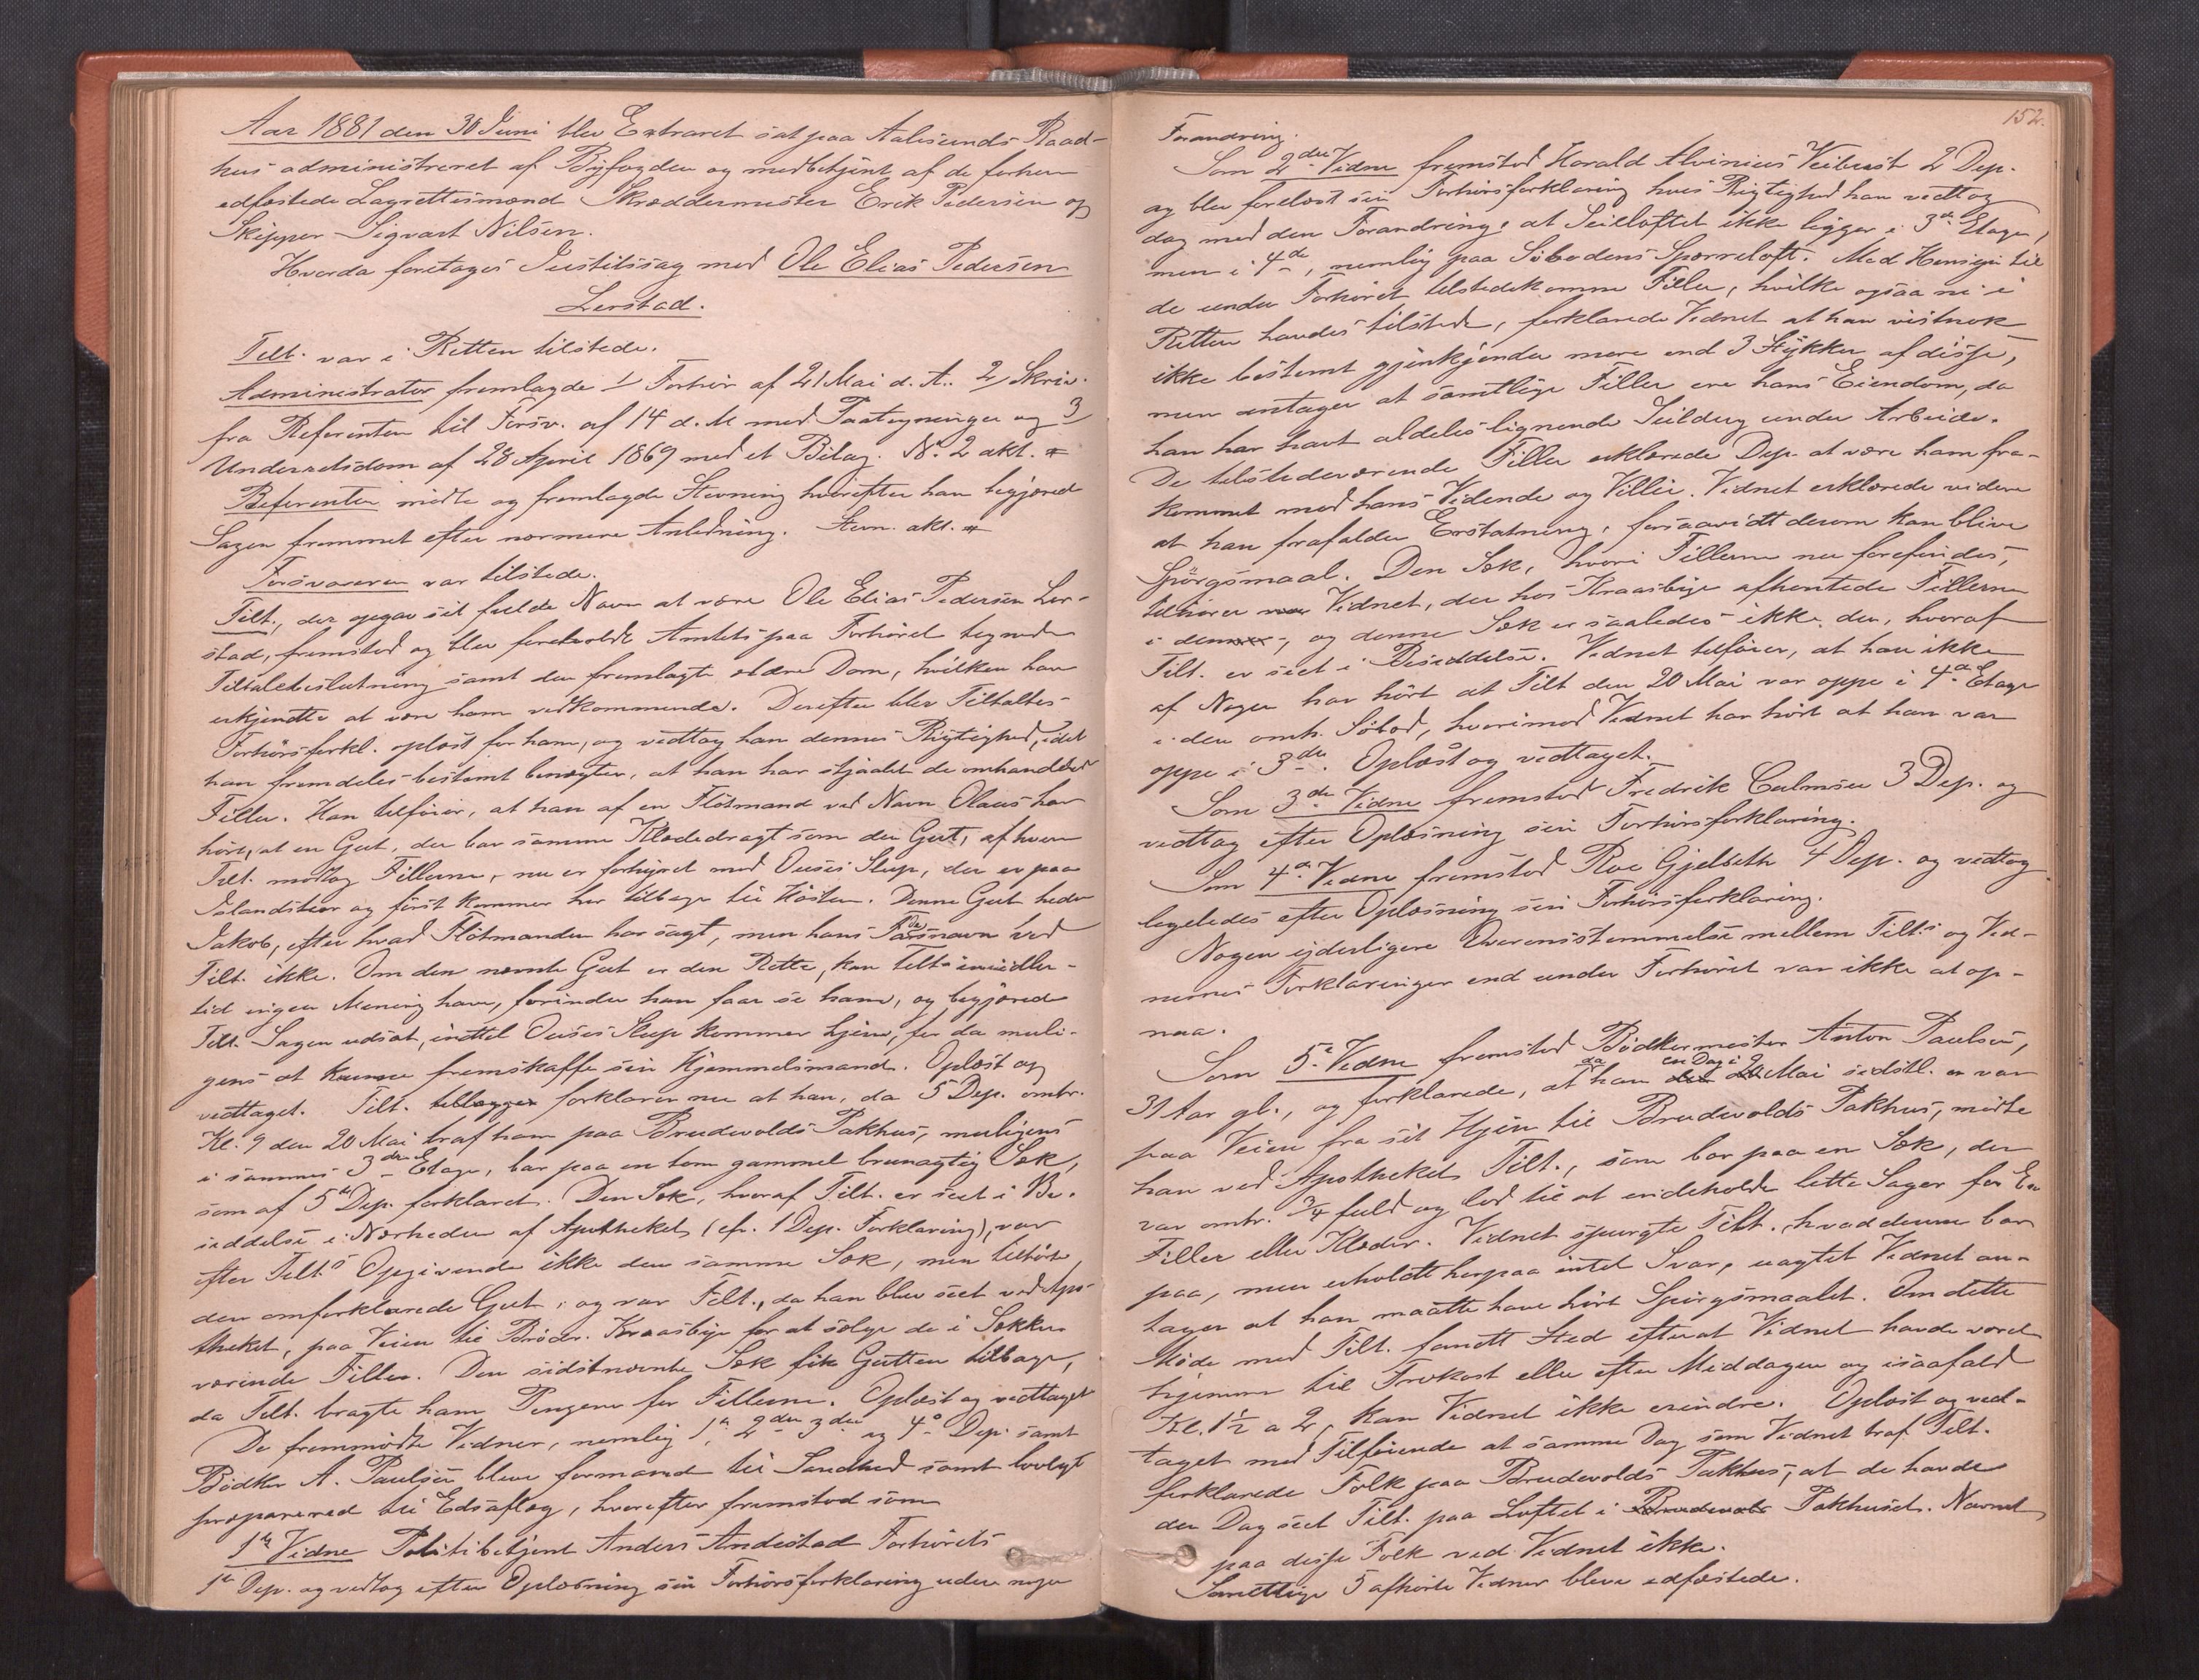 Aar 1881 den 30 Juni blev Extraret sat paa Aalesunds Raad-
hus administreret af Byfogden og medbetjent af de forhen
edfæstede Lagrettesmænd Skræddermester Erik Pedersen og
Skipper Sigvart Nilsen.
Hvorda foretages Justitssag mod Ole Elias Pedersen
Lerstad.
Tilt. var i Retten tilstede.
Administrator fremlagde 1/ Forhør af 21 Mai d. A. 2/ Skriv.
fra Referenten til Forsv. af 14 d. M med Paategninger og 3/
Underretsdom af 28 April 1869 med et Bilag. No 2 akt. #
Referenten mødte og fremlagde Stevning hvorefter han begjærede
Sagen fremmet efter nærmere Anledning. Stevn. akt. #
Forsvareren var tilstede.
Tilt., der opgav sit fulde Navn at være Ole Elias Pedersen Ler-
stad, fremstod og blev foreholdt Amtets paa Forhøret tegnede
Tiltalebeslutning samt den fremlagte ældre Dom, hvilken han
erkjendte at være ham vedkommende. Derefter blev Tiltaltes
Forhørsforkl. oplæst for ham, og vedtog han dennes Rigtighed, idet
han fremdeles bestemt benægter, at han har stjaalet de omhandlede
Filler. Han tilføier, at han af en Flötmand ved Navn Olaus har
hørt, at en Gut, der bar samme Klædedragt som den Gut, af hvem
Tilt. modtog Fillerne, nu er forhyret med Ouses Slup, der er paa
Islandstur og først kommer her tilbage til Høsten. Denne Gut heder
Jakob, efter hvad Flötmanden har sagt, men hans Farsnavn ved
Tilt. ikke. Om den nævnte Gut er den Rette, kan Tilt. imidler-
tid ingen Mening have, forinden han faar se ham, og begjærede
Tilt. Sagen udsat, indtil Ouses Slup kommer hjem, for da muli-
gens at kunne fremskaffe sin Hjemmelsmand. Oplæst og
vedtaget. Tilt. tillægger forklarer nu at han, da 5 Dep. omtr.
Kl. 9 den 20 Mai traf ham paa Brudevolds Pakhus, muligens
i sammes 3die Etage, bar paa en tom gammel brunagtig Sæk,
som af 5te Dep. forklaret. Den Sæk, hvoraf Tilt. er seet i Be-
siddelse i Nærheden af Apotheket (cfr. 1 Dep. Forklaring), var
efter Tilts Opgivende ikke den samme Sæk, men tilhørte
den omforklarede Gut, og var Tilt., da han blev seet ved Apo-
theket, paa Veien til Brødr. Kraasbye for at sælge de i Sækken
værende Filler. Den sidstnævnte Sæk fik Gutten tilbage,
da Tilt. bragte ham Pengene for Fillerne. Oplæst og vedtaget
De fremmødte Vidner, nemlig 1te 2den 3die og 4de Dep. samt
Bødker A. Paulsen bleve formanede til Sandhed samt lovligt
præparerede til Edsaflæg, hvorefter fremstod som
1te Vidne Politibetjent Anders Andestad Forhørets
1te Dep. og vedtog efter Oplæsning sin Forhørsforklaring uden nogen
152.
Forandring.
Som 2det Vidne fremstod Harald Alvinius Veibust 2 Dep.
og blev forelæst sin Forhørsforklaring hvis Rigtighed han vedtog
dog med den Forandring, at Seilloftet ikke ligger i 3die Etage,
men i 4de, nemlig paa Søbodens Sparreloft. Med Hensyn til
de under Forhøret tilstedekomne Filler, hvilke ogsaa nu i
Retten havdes tilstede, forklarede Vidnet at han vistnok
ikke bestemt gjenkjender mere end 3 Stykker af disse,
men antager at samtlige Filler ere hans Eiendom, da
han har havt aldeles lignende Seildug under Arbeide.
De tilstedeværende Filler erklærede Dep. at være ham fra-
kommet mod hans Vidende og Villie. Vidnet erklærede videre
at han frafalder Erstatning, forsaavidt derom kan blive
Spörgsmaal. Den Sæk, hvori Fillerne nu forefindes,
tilhører Vidnet, der hos Kraasbye afhentede Fillerne
i denne, og denne Sæk er saaledes ikke den, hvoraf
Tilt. er seet i Besiddelse. Vidnet tilføier, at han ikke
af Nogen har hørt at Tilt den 20 Mai var oppe i 4de Etage
i den omh. Söbod, hvorimod Vidnet har hört at han var
oppe i 3die. Oplæst og vedtaget.
Som 3die Vidne fremstod Fredrik Culmsee 3 Dep. og
vedtog efter Oplæsning sin Forhørsforklaring.
Som 4de Vidne fremstod Roe Gjelseth 4 Dep. og vedtog
ligeledes efter Oplæsning sin Forhørsforklaring.
Nogen yderligere Overensstemmelse mellem Tilts og Vid-
nernes Forklaringer end under Forhøret var ikke at op-
naa.
Som 5te Vidne fremstod Bødkermester Anton Paulsen,
31 Aar gl., og forklarede, at da han en Dag i Mai sidstl. var
paa Veien fra sit Hjem til Brudevolds Pakhus, mødte
han ved Apotheket Tilt., som bar paa en Sæk, der
var omtr. 3/4 fuld og lod til at indeholde lette Sager for Ex
Filler eller Klæder. Vidnet spurgte Tilt. hvad denne bar
paa, men erholdt herpaa intet Svar, uagtet Vidnet an-
tager at han maatte have hört Spørgsmaalet. Om dette
Møde med Tilt. fandt Sted efterat Vidnet havde været
hjemme til Frokost eller efter Middagen og isaafald
Kl. 1½ a 2, kan Vidnet ikke erindre. Oplæst og ved-
taget med Tilføiende at samme Dag som Vidnet traf Tilt.
forklarede Folk paa Brudevolds Pakhus, at de havde
den Dag seet Tilt. paa Loftet i Brudevolds Pakhuset. Navnet
paa disse Folk ved Vidnet ikke.
Samtlige 5 afhørte Vidner bleve edfæstede.